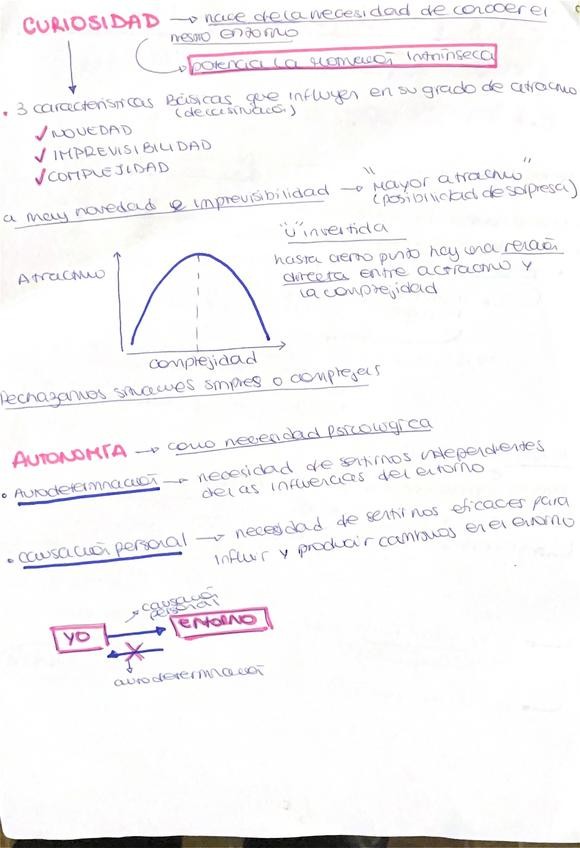 CURIOSIDAD → nace de la necesidad de conocer el
mismo entorno
potencia la motivación intrínseca
• 3 características Básicas que influyen en su grado de atractivo
(de la situación)
✓ NOVEDAD
✓ IMPREVISIBILIDAD
✓ COMPLEJIDAD
a may novedad e imprevisibilidad → "Mayor atractivo"
(posibilidad de sorpresa)
"U" invertida
hasta cierto punto hay una relación
directa entre atractivo y
la complejidad
Atractivo
complejidad
Rechazamos situaciones simples o complejas
AUTONOMÍA → como necesidad psicológica
• Autodeterminación → necesidad de sentirnos independientes
de las influencias del entorno
• causación personal → necesidad de sentirnos eficaces para
influir y producir cambios en el entorno
causación
personal
YO
ENTORNO
autodeterminación